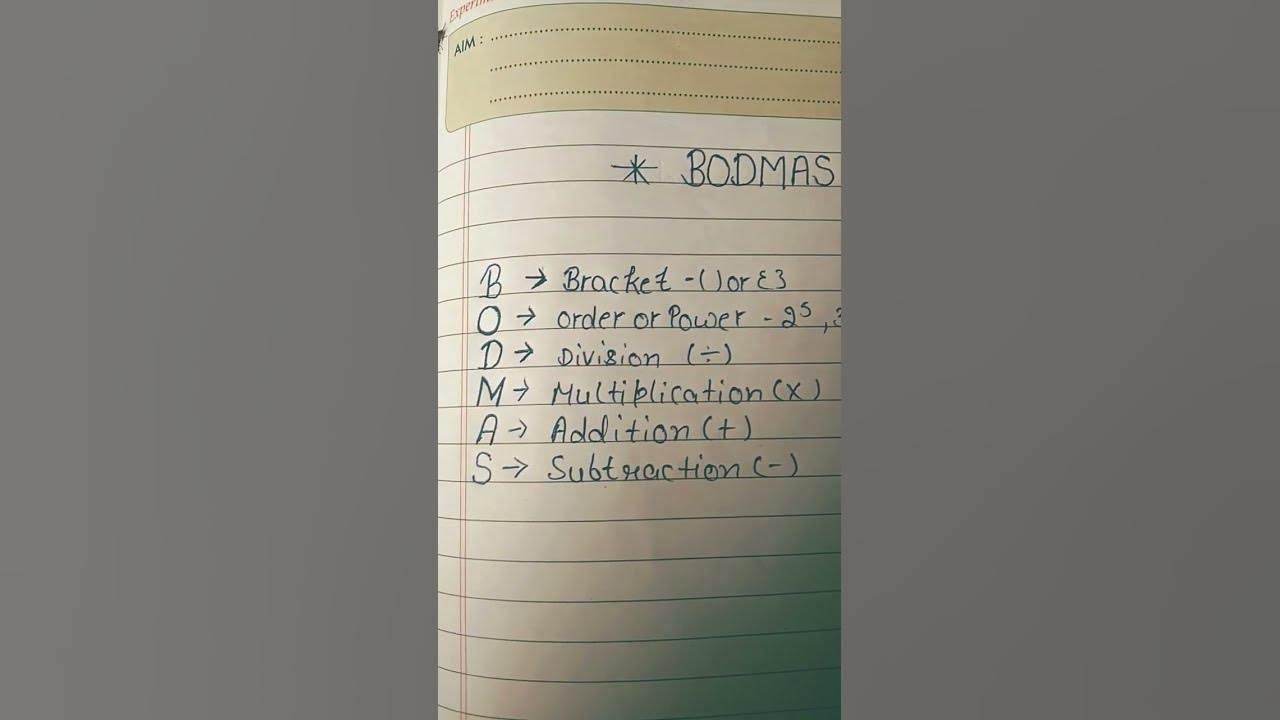 AIM :
* BODMAS
B → Bracket - () or {}
O → order or Power - 2⁵ ,
D → Division (÷)
M → Multiplication (×)
A → Addition (+)
S → Subtraction (-)